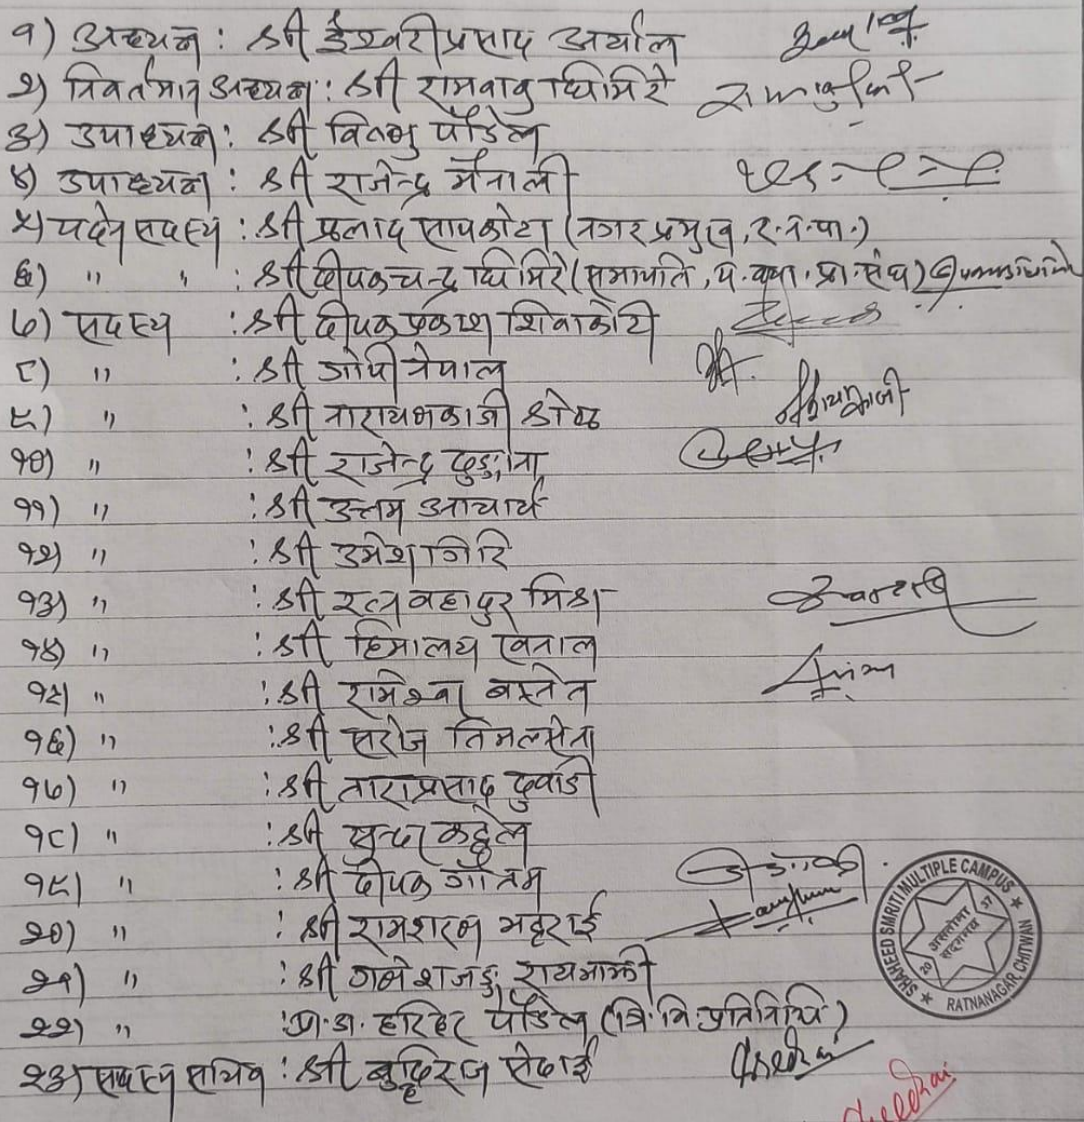 १) अध्यक्ष : श्री ईश्वरीप्रसाद अर्याल
२) निवर्तमान अध्यक्ष : श्री रामबाबु घिमिरे
३) उपाध्यक्ष : श्री विष्णु पौडेल
४) उपाध्यक्ष : श्री राजेन्द्र मैनाली
५) पदेन सदस्य : श्री प्रल्हाद सापकोटा (नगर प्रमुख, र.न.पा.)
६) " " : श्री दीपकचन्द्र घिमिरे (सभापति, पं. क्या. प्रा. संघ)
७) सदस्य : श्री दीपक प्रकाश शिवाकोटी
८) " : श्री गोपी नेपाल
९) " : श्री नारायणकाजी श्रेष्ठ
१०) " : श्री राजेन्द्र ढुङ्गाना
११) " : श्री उत्तम आचार्य
१२) " : श्री उमेश गिरि
१३) " : श्री रत्नबहादुर मिश्र
१४) " : श्री हिमालय खनाल
१५) " : श्री रामेश्वर बस्नेत
१६) " : श्री सरोज तिमल्सेना
१७) " : श्री ताराप्रसाद दुवाडी
१८) " : श्री सुन्दर कट्टेल
१९) " : श्री दीपक गौतम
२०) " : श्री रामशरण भट्टराई
२१) " : श्री गणेशजङ्ग रायमाझी
२२) " : प्रा.डा. हरिहर पौडेल (त्रि.वि. प्रतिनिधि)
२३) सदस्य सचिव : श्री बुद्धिराज सेढाई
SHAHEED SMRITI MULTIPLE CAMPUS
असतोमा
सद्गमय
20 37
RATNANAGAR CHITWAN